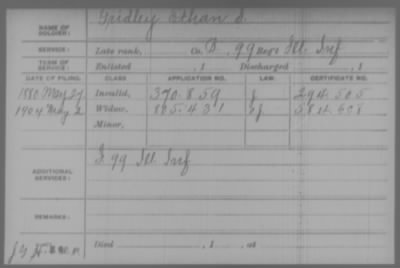 NAME OF SOLDIER: Gridley Ethan S.
SERVICE: Late rank, Co. B, 99 Reg't Ill. Inf
TERM OF SERVICE: Enlisted , 1 Discharged , 1
DATE OF FILING. CLASS. APPLICATION NO. LAW. CERTIFICATE NO.
1880 May 27 Invalid, 370.859 294.505
1904 May 2 Widow, 805.431
Minor,
ADDITIONAL SERVICES: I 99 Ill. Inf
REMARKS:
Died , 1 , at